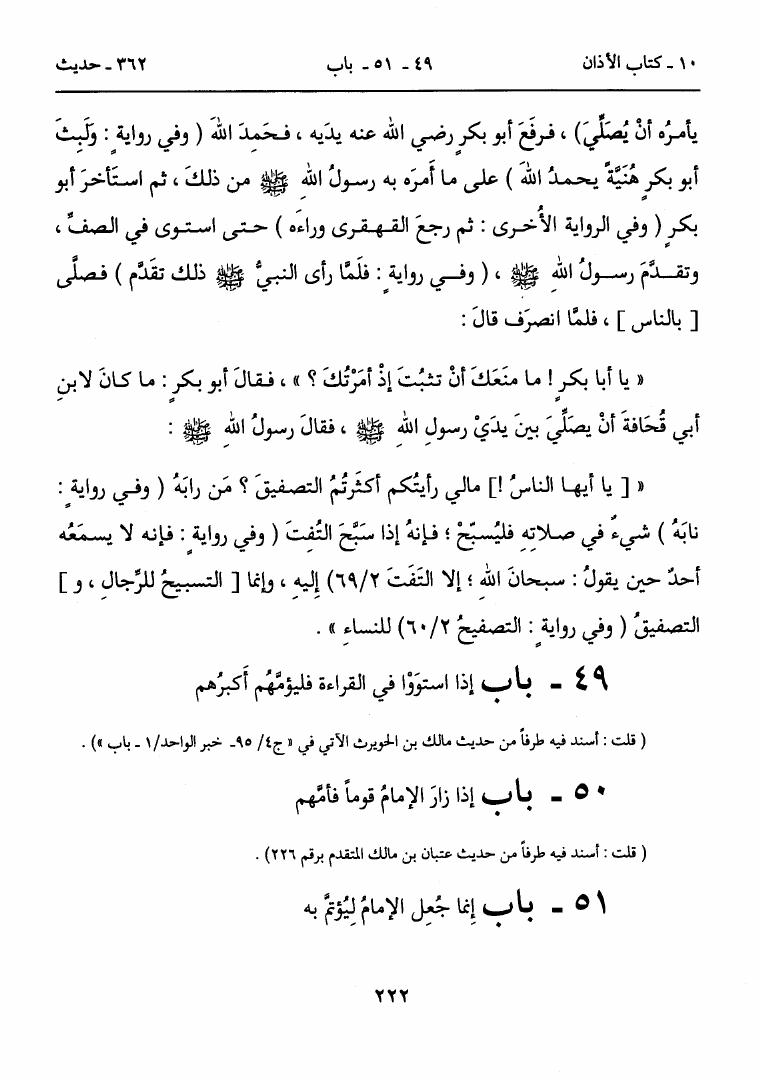 ١٠ - كتاب الأذان ٤٩ - ٥١ - باب ٣٦٢ - حديث
يأمرُه أنْ يُصلِّيَ) ، فرفَعَ أبو بكرٍ رضي الله عنه يدَيه ، فحَمِدَ اللهَ ( وفي روايةٍ : ولَبِثَ
أبو بكرٍ هُنَيَّةً يحمدُ اللهَ ) على ما أَمرَه به رسولُ اللهِ ﷺ من ذلكَ ، ثم استَأخرَ أبو
بكرٍ ( وفي الرواية الأُخرى : ثم رجعَ القهقرى وراءَه ) حتى استوى في الصفِّ ،
وتقدَّمَ رسولُ اللهِ ﷺ ، ( وفي روايةٍ : فلَمَّا رأى النبيُّ ﷺ ذلك تقَدَّم ) فصلَّى
[ بالناس ] ، فلمَّا انصرَف قالَ :
« يا أبا بكرٍ ! ما منَعَكَ أنْ تثبُتَ إذْ أمَرْتُكَ ؟ » ، فقالَ أبو بكرٍ : ما كانَ لابنِ
أبي قُحَافةَ أنْ يصَلِّيَ بينَ يدَيْ رسولِ اللهِ ﷺ ، فقالَ رسولُ اللهِ ﷺ :
« [ يا أيها الناسُ !] مالي رأيتُكم أكثَرتُمُ التصفيقَ ؟ مَن رابَهُ ( وفي روايةٍ :
نابَهُ ) شيءٌ في صلاتِهِ فليُسبِّحْ ؛ فإنهُ إذا سَبَّحَ التُفِتَ ( وفي روايةٍ : فإنه لا يسمَعُه
أحدٌ حين يقولُ : سبحانَ اللهِ ؛ إلا التَفَتَ ٦٩/٢) إليهِ ، وإنما [ التسبيحُ للرِّجالِ ، و ]
التصفيقُ ( وفي روايةٍ : التصفيحُ ٦٠/٢) للنساءِ » .
٤٩ - باب إذا استوَوْا في القراءة فليؤمَّهُم أَكبرُهم
( قلت : أسند فيه طرفاً من حديث مالك بن الحويرث الآتي في « ج٤/ ٩٥- خبر الواحد/١ - باب ») .
٥٠ - باب إذا زارَ الإمامُ قوماً فأمَّهم
( قلت : أسند فيه طرفاً من حديث عتبان بن مالك المتقدم برقم ٢٢٦) .
٥١ - باب إنما جُعِل الإمامُ لِيُؤتمَّ به
٢٢٢